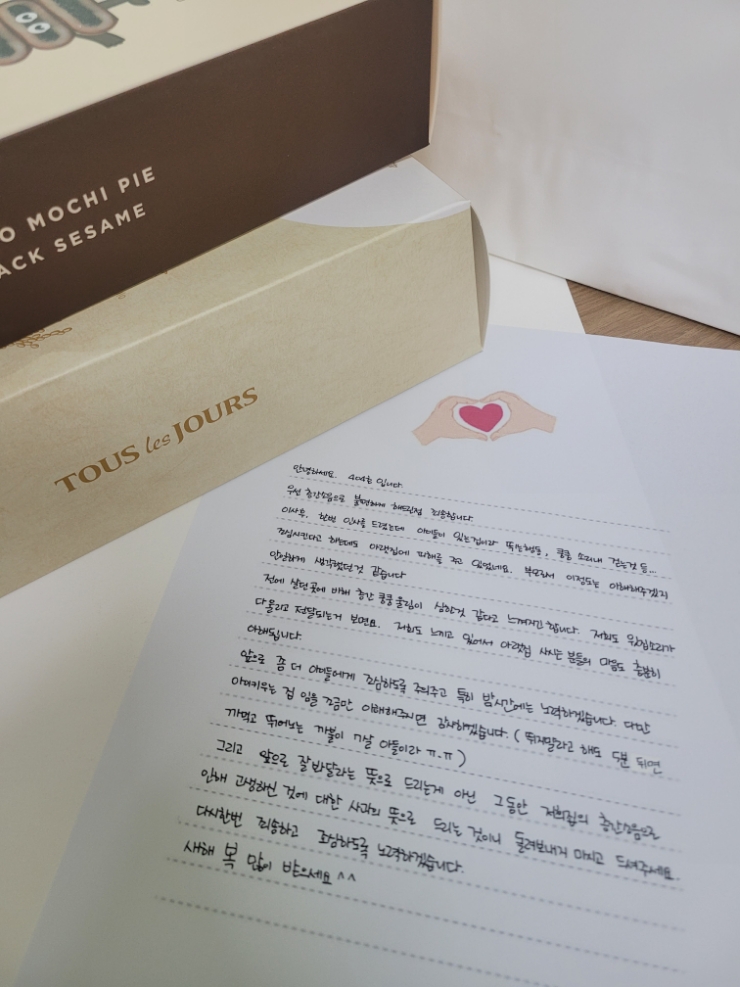 O MOCHI PIE
ACK SESAME
TOUS les JOURS
안녕하세요. 404호 입니다.
우선 층간소음으로 불편하게 해드린점 죄송합니다.
이사후, 한번 인사를 드렸는데 아이들이 있는집이라 뛰는행동, 쿵쿵 소리내 걷는것 등...
조심시킨다고 하는데도 아랫집에 피해를 주고 있었네요. 부모로서 이정도는 이해해주겠지
안일하게 생각했던것 같습니다
전에 살던곳에 비해 층간 쿵쿵울림이 심한것 같다고 느껴지긴 합니다. 저희도 윗집소리가
다 울리고 전달되는거 보면요. 저희도 느끼고 있어서 아랫집 사시는 분들의 마음도 충분히
이해됩니다.
앞으로 좀 더 아이들에게 조심하도록 주의주고 특히 밤시간에는 노력하겠습니다. 다만
아이키우는 집 임을 조금만 이해해주시면 감사하겠습니다. ( 뛰지말라고 해도 5분 뒤면
까먹고 뛰어노는 까불이 7살 아들이라 ㅠ.ㅠ )
그리고 앞으로 잘봐달라는 뜻으로 드리는게 아닌 그동안 저희집의 층간소음으로
인해 고생하신 것에 대한 사과의 뜻으로 드리는 것이니 돌려보내지 마시고 드셔주세요.
다시한번 죄송하고 조심하도록 노력하겠습니다.
새해 복 많이 받으세요 ^^